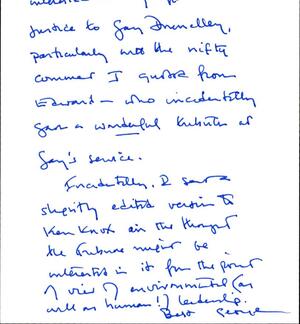 justice to Gay Donnelley,
particularly with the nifty
comment I quote from
Edward — who incidentally
gave a wonderful tribute at
Gay's service.
Incidentally, I sent a
slightly edited version to
Ken Knox on the thought
the Tribune might be
interested in it from the point
of view of environmental (as
well as human!) leadership.
Best George